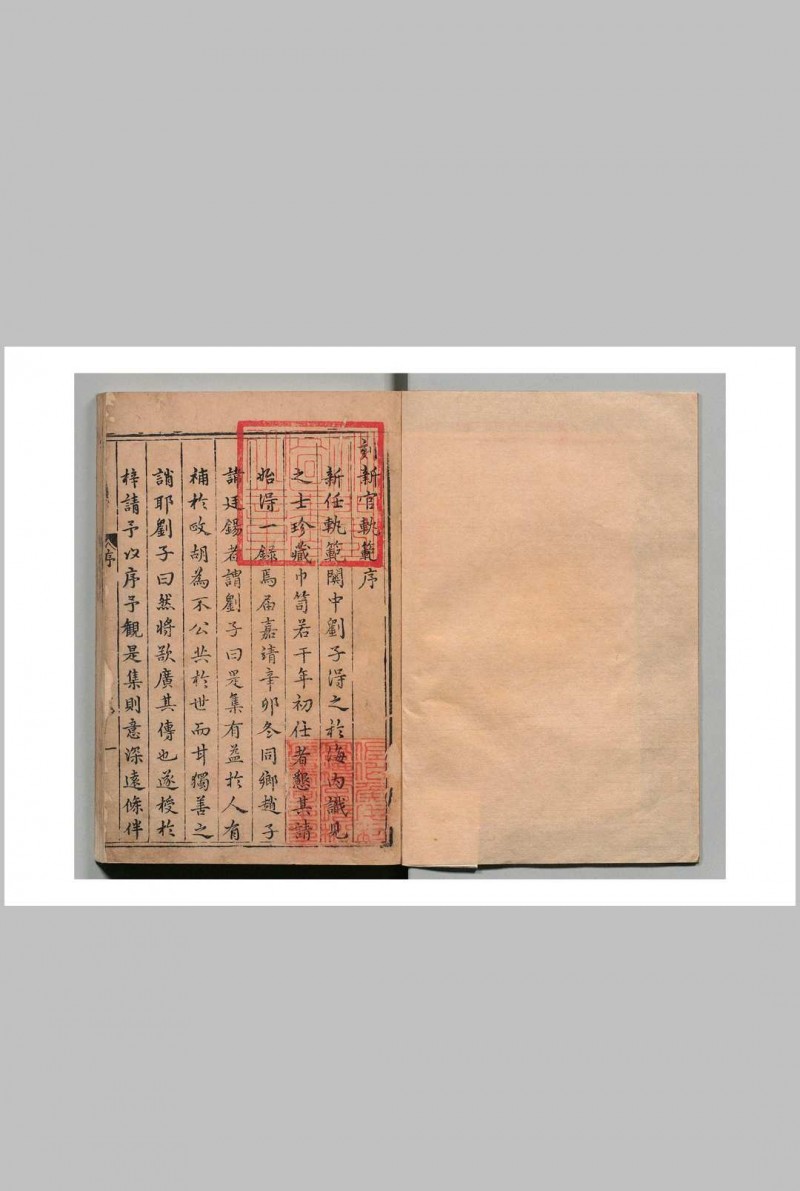 刻新官軌範序
新任軌範關中劉子得之於海內識見
之士珍藏巾笥若干年初任者懇其請
始得一錄焉届嘉靖辛卯冬同鄉趙子
諱廷錫者謂劉子曰是集有益於人有
補於政胡為不公共於世而甘獨善之
誚耶劉子曰然將欲廣其傳也遂授於
梓請予以序予觀是集則意深遠條件
序
一